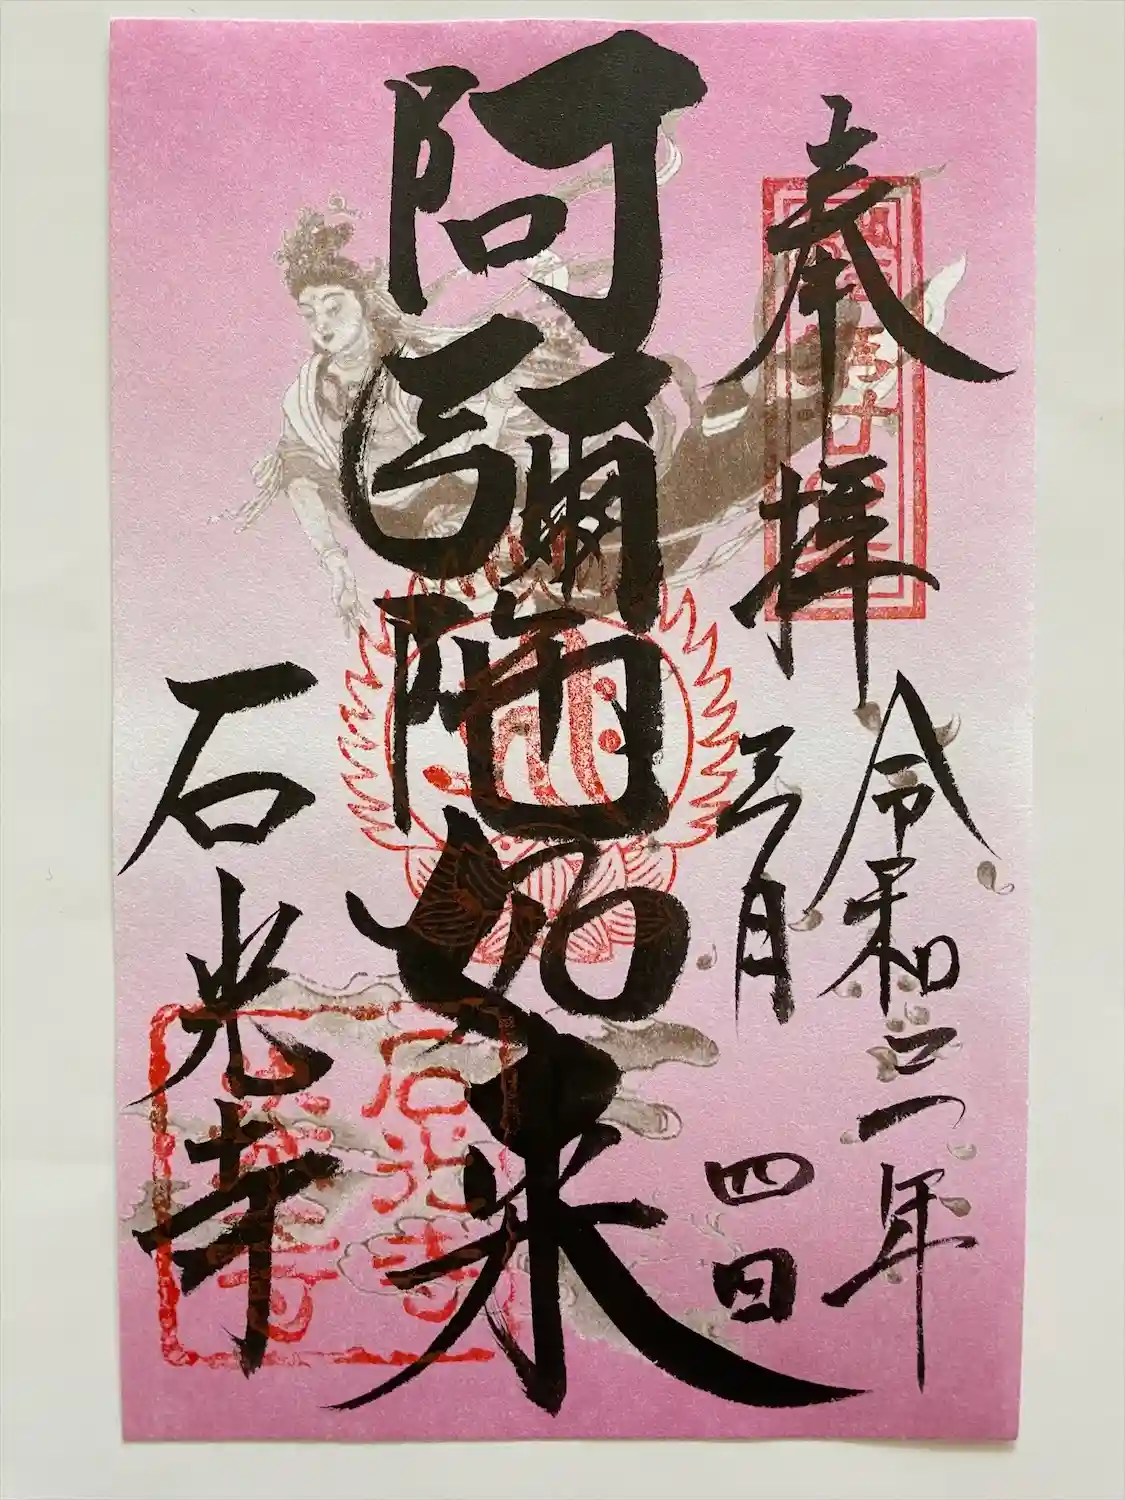 奉拝
令和三年
三月
四日
阿彌陀如来
石光寺
石光寺